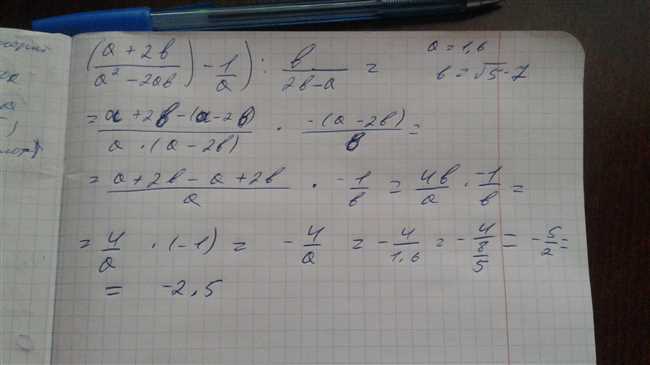 ((a + 2b)/(a² - 2ab) - 1/a) : b/(2b-a) = a = 1,6
b = √5 - 7
= (a + 2b - (a - 2b))/(a · (a - 2b)) · (-(a - 2b))/b =
= (a + 2b - a + 2b)/a · -1/b = 4b/a · -1/b =
= 4/a · (-1) = - 4/a = - 4/1,6 = - 4/(8/5) = - 5/2 =
= -2,5